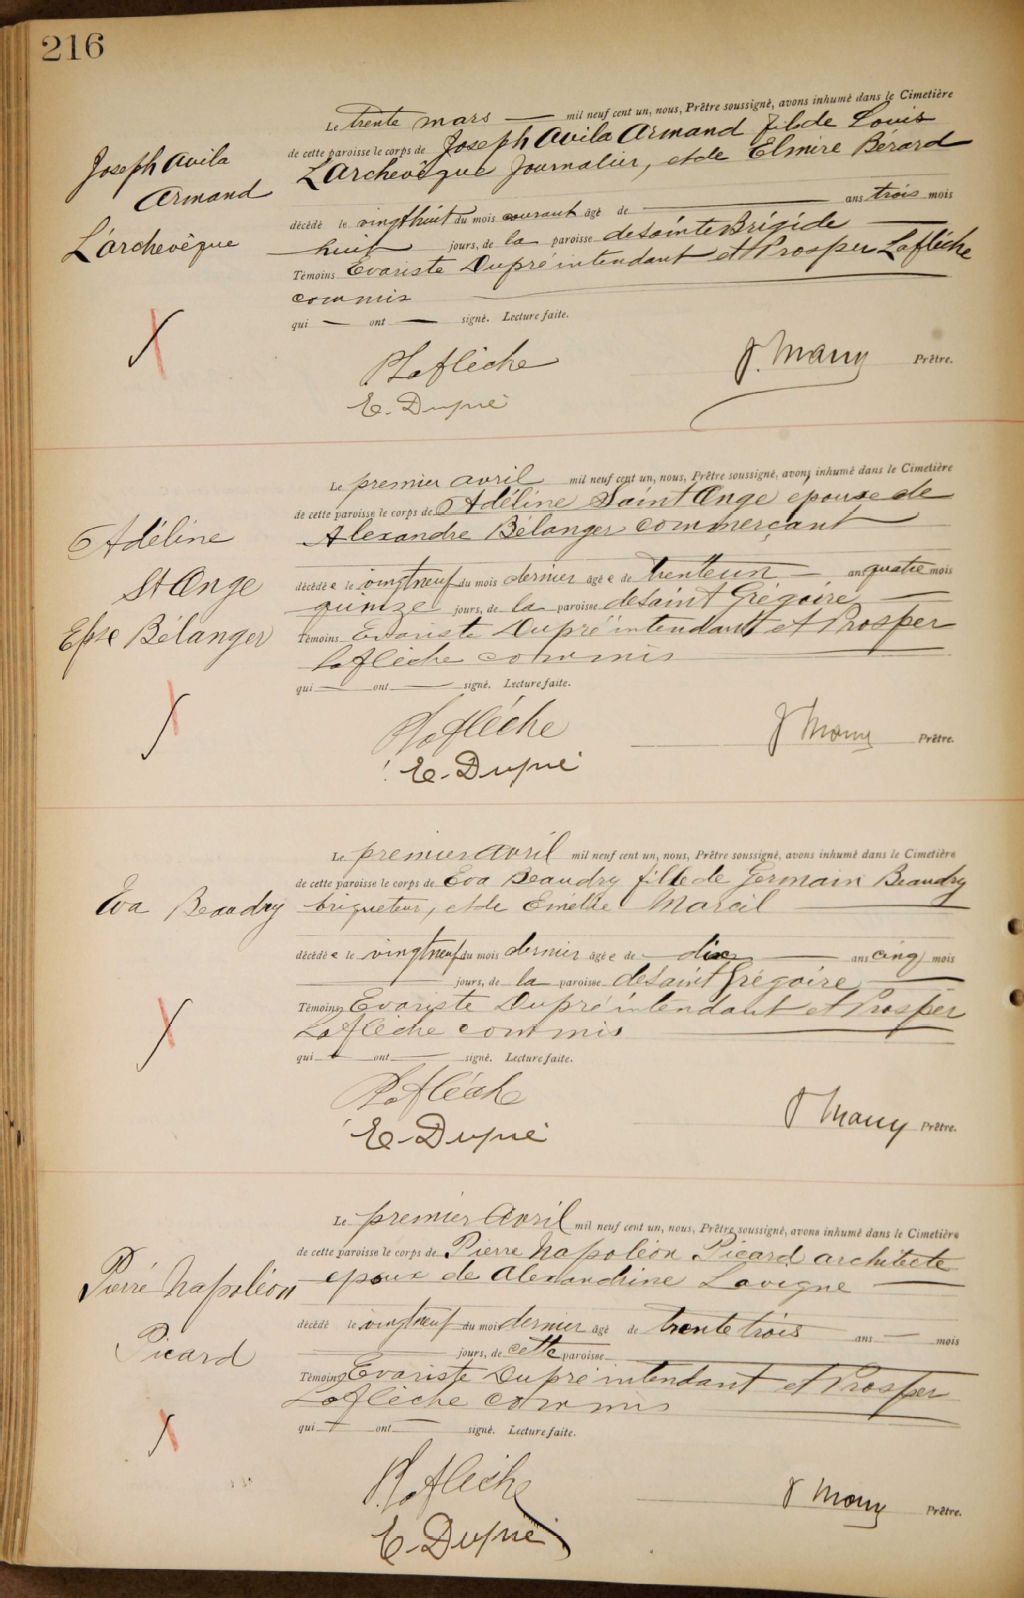 216
Le trente mars — mil neuf cent un, nous, Prêtre soussigné, avons inhumé dans le Cimetière
de cette paroisse le corps de Joseph Avila Armand fils de Louis
Joseph Avila
Armand
L'archevèque
L'Archevèque journalier, et de Elmire Bérard
décédé le vingthuit du mois courant âgé de — ans trois mois
huit jours, de la paroisse de Sainte Brigide
Témoins Evariste Dupré intendant et Prosper Laflèche
commis
qui — ont — signé. Lecture faite.
P Laflèche
Prêtre.
E. Dupré
Le premier avril mil neuf cent un, nous, Prêtre soussigné, avons inhumé dans le Cimetière
de cette paroisse le corps de Adéline Saint Onge epouse de
Adéline
St Onge
Epse Bélanger
Alexandre Bélanger commerçant
décédée le vingtneuf du mois dernier âgée de trenteun — ans quatre mois
quinze jours, de la paroisse de Saint Grégoire —
Témoins Evariste Dupré intendant et Prosper
Laflèche commis
qui — ont — signé. Lecture faite.
P Laflèche
Prêtre.
E. Dupré
Le premier avril mil neuf cent un, nous, Prêtre soussigné, avons inhumé dans le Cimetière
de cette paroisse le corps de Eva Beaudry fille de Germain Beaudry
Eva Beaudry
briqueteur, et de Emélie Marcil
décédée le vingtneuf du mois dernier âgée de dix — ans cinq mois
— jours, de la paroisse de Saint Grégoire —
Témoins Evariste Dupré intendant et Prosper
Laflèche commis
qui — ont — signé. Lecture faite.
P Laflèche
Prêtre.
E. Dupré
Le premier Avril mil neuf cent un, nous, Prêtre soussigné, avons inhumé dans le Cimetière
de cette paroisse le corps de Pierre Napoléon Picard architecte
Pierre Napoléon
Picard
epoux de Alexandrine Lavigne —
décédé le vingtneuf du mois dernier âgé de trente trois — ans — mois
— jours, de cette paroisse —
Témoins Evariste Dupré intendant et Prosper
Laflèche commis
qui — ont — signé. Lecture faite.
P. Laflèche
Prêtre.
E. Dupré